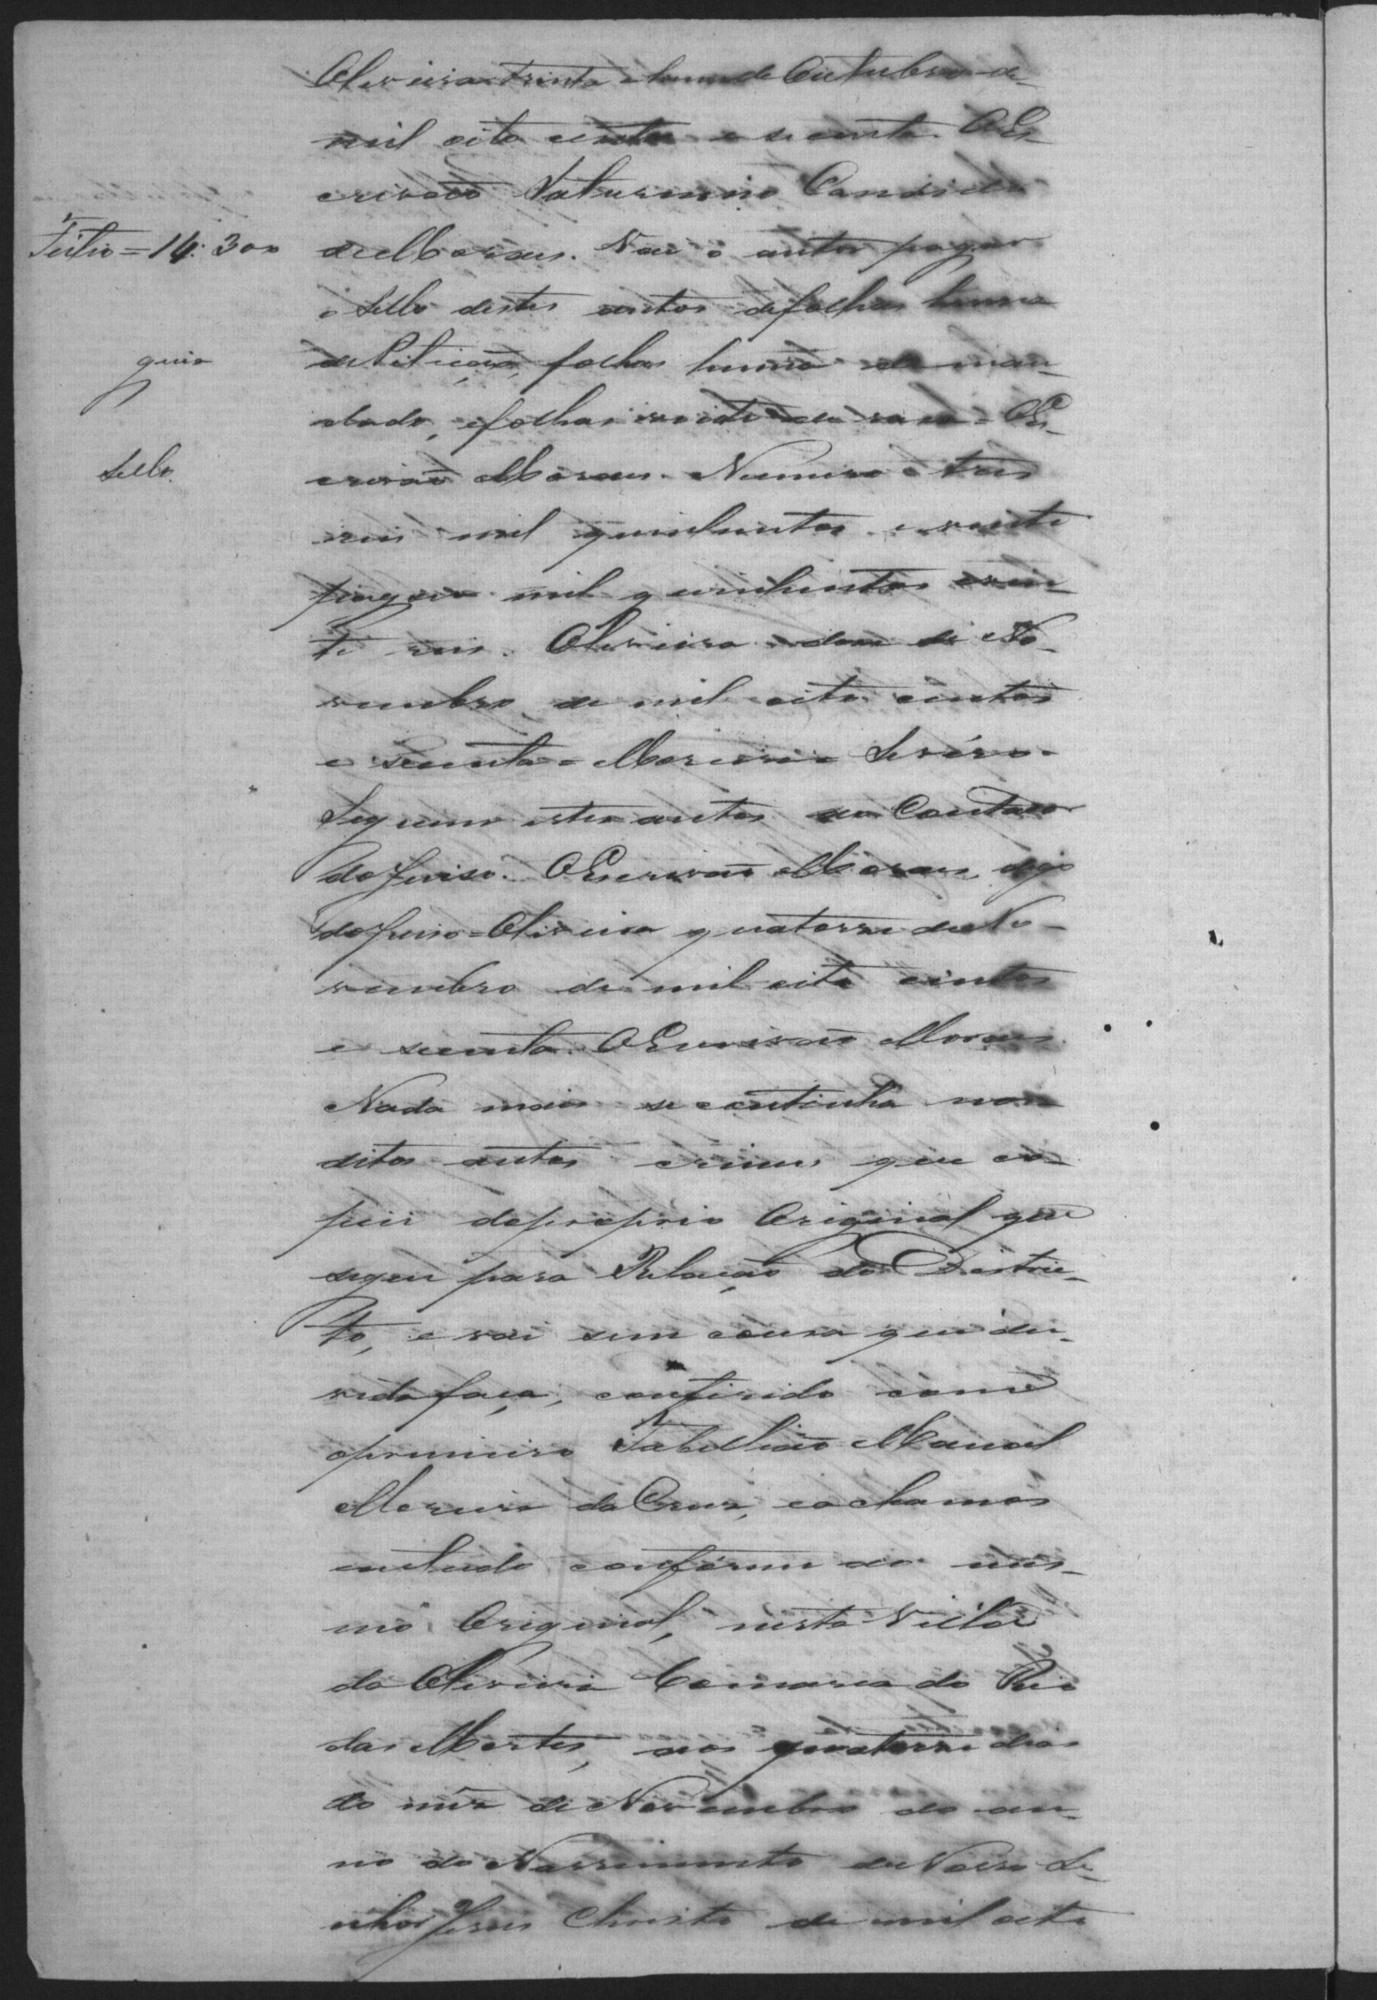 Oliveira trinta e hum de Outubro de
mil oito centos e secenta. O Es-
crivão Saturnino Candido
Feitio = 14:300
de Moraes. Vai o autor pagar
o Sello destes autos de folhas huma
guia
de Petição, folhas huma de man-
dado, e folhas vinte de raza. O Es-
Sello.
crivão Moraes. Numero tres
reis mil quinhentos e vinte
pagou mil quinhentos e vin-
te reis. Oliveira dous de No-
vembro de mil oito centos
e secenta = Moreira Severo =
Seguem estes autos ao Contador
do Juiso. O Escrivão Moraes, digo
do Juiso = Oliveira quatorze de No-
vembro de mil oito centos
e secenta. O Escrivão Moraes.
Nada mais se continha nos
ditos autos crimes que co-
piei do proprio Original que
segue para Relação do Distric-
to, e vai sem cousa que du-
vida faça, conferido com o
primeiro Tabellião Manoel
Moreira da Cruz, e achamos
em tudo conforme ao mes-
mo Original, nesta Villa
da Oliveira Comarca do Rio
das Mortes, aos quatorze dias
do mez de Novembro do an-
no do Nascimento de Nosso Se-
nhor Jesus Christo de mil oito